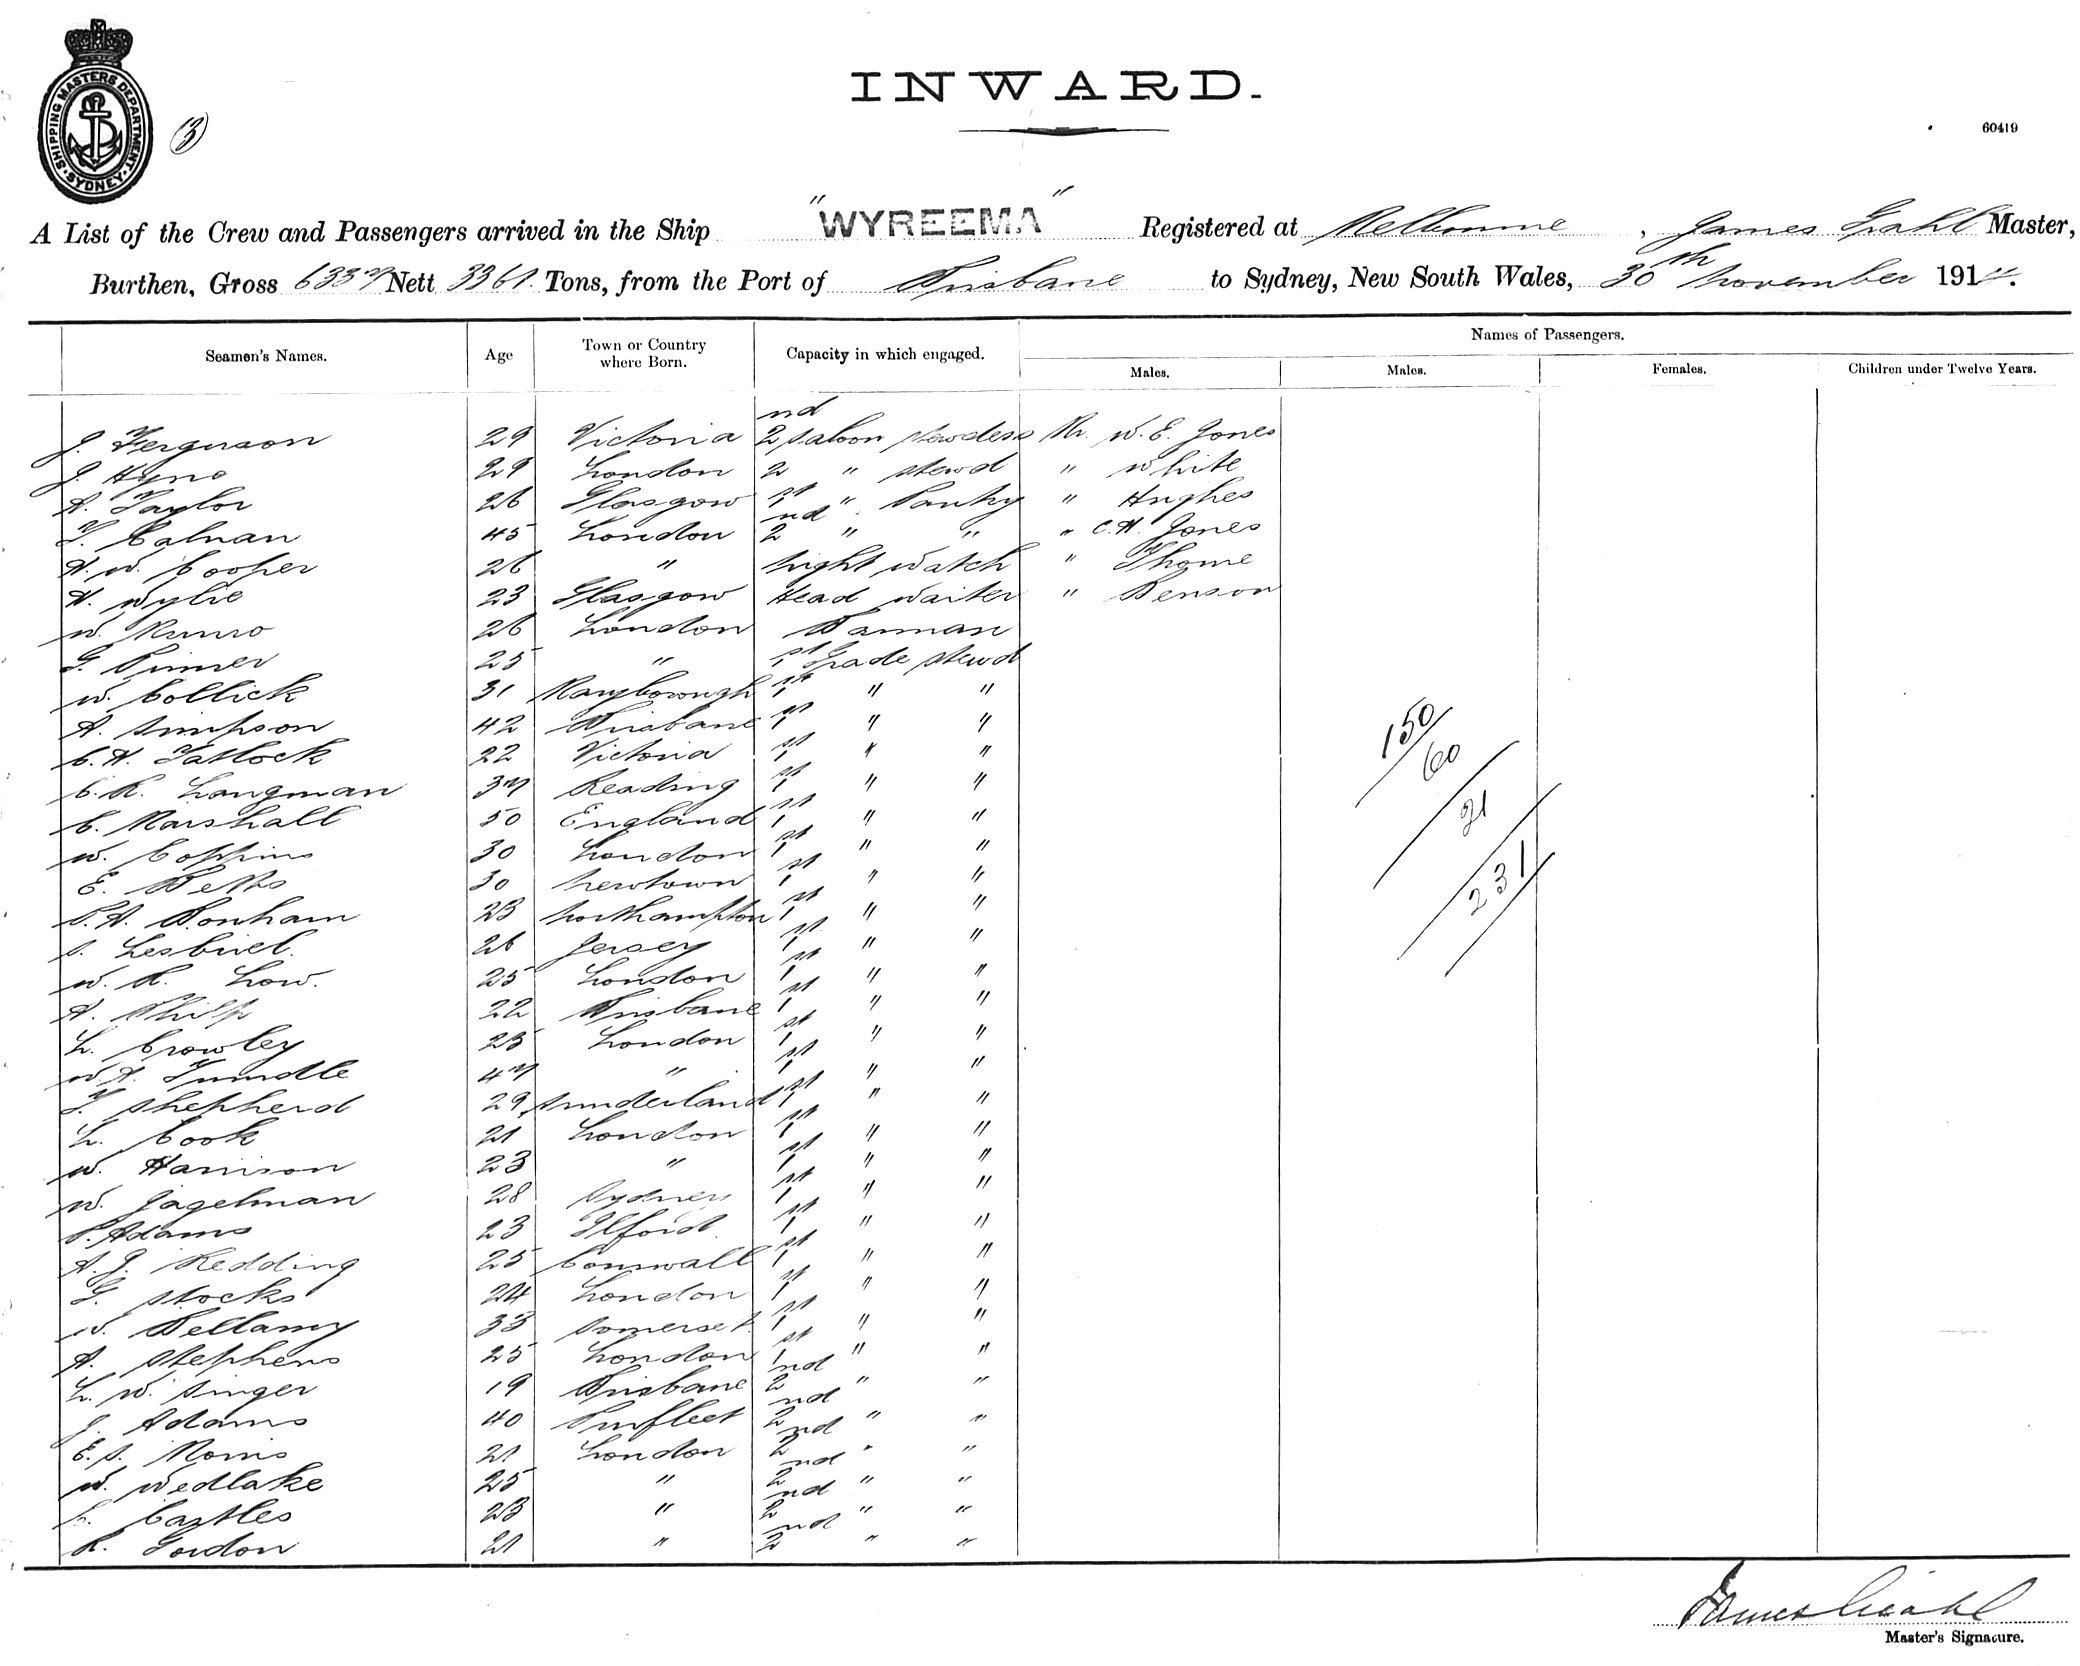 INWARD.
SHIPPING MASTERS DEPARTMENT
SYDNEY
(3)
60419
A List of the Crew and Passengers arrived in the Ship "WYREEMA" Registered at Melbourne, James Grahl Master,
Burthen, Gross 6337 Nett 3361 Tons, from the Port of Brisbane to Sydney, New South Wales, 30th November 1914.
Seamen's Names. Age Town or Country where Born. Capacity in which engaged. Names of Passengers.
Males. Males. Females. Children under Twelve Years.
J. Ferguson 29 Victoria 2nd Saloon Stewdess Mr. W. E. Jones
J. Hyno 29 London 2 " Stewd " White
A. Taylor 26 Glasgow 1st " Pantry " Hughes
T. Calnan 45 London 2nd " " " C. H. Jones
H. W. Cooper 26 " Night Watch " Thome
H. Wylie 23 Glasgow Head Waiter " Benson
W. Munro 26 London Barman
G. Pinner 25 " 1st Grade Stewd
W. Collick 31 Maryborough 1st " "
A. Simpson 42 Brisbane 1st " "
C. H. Tatlock 22 Victoria 1st " "
C. R. Langman 37 Reading 1st " "
C. Marshall 50 England 1st " "
W. Coppins 30 London 1st " "
E. Betts 30 Newtown 1st " "
P. H. Bonham 23 Northampton 1st " "
S. 26 Jersey 1st " "
W. R. Low. 25 London 1st " "
A. Philp 22 Brisbane 1st " "
L. Crowley 25 London 1st " "
W. A. Trundle 47 " 1st " "
T. Shepherd 29 Sunderland 1st " "
L. Cook 21 London 1st " "
W. Harrison 23 " 1st " "
W. Jagelman 28 Sydney 1st " "
P. Adams 23 Ilford 1st " "
A. J. Redding 25 Cornwall 1st " "
G. Stocks 24 London 1st " "
W. Bellamy 33 Somerset 1st " "
A. Stephens 25 London 1st " "
L. W. Singer 19 Brisbane 2nd " "
J. Adams 40 Purfleet 2nd " "
E. S. Morris 21 London 2nd " "
W. Wedlake 25 " 2nd " "
Castles 23 " 2nd " "
R. Gordon 21 " 2nd " "
150
60
21
231
James Grahl
Master's Signature.